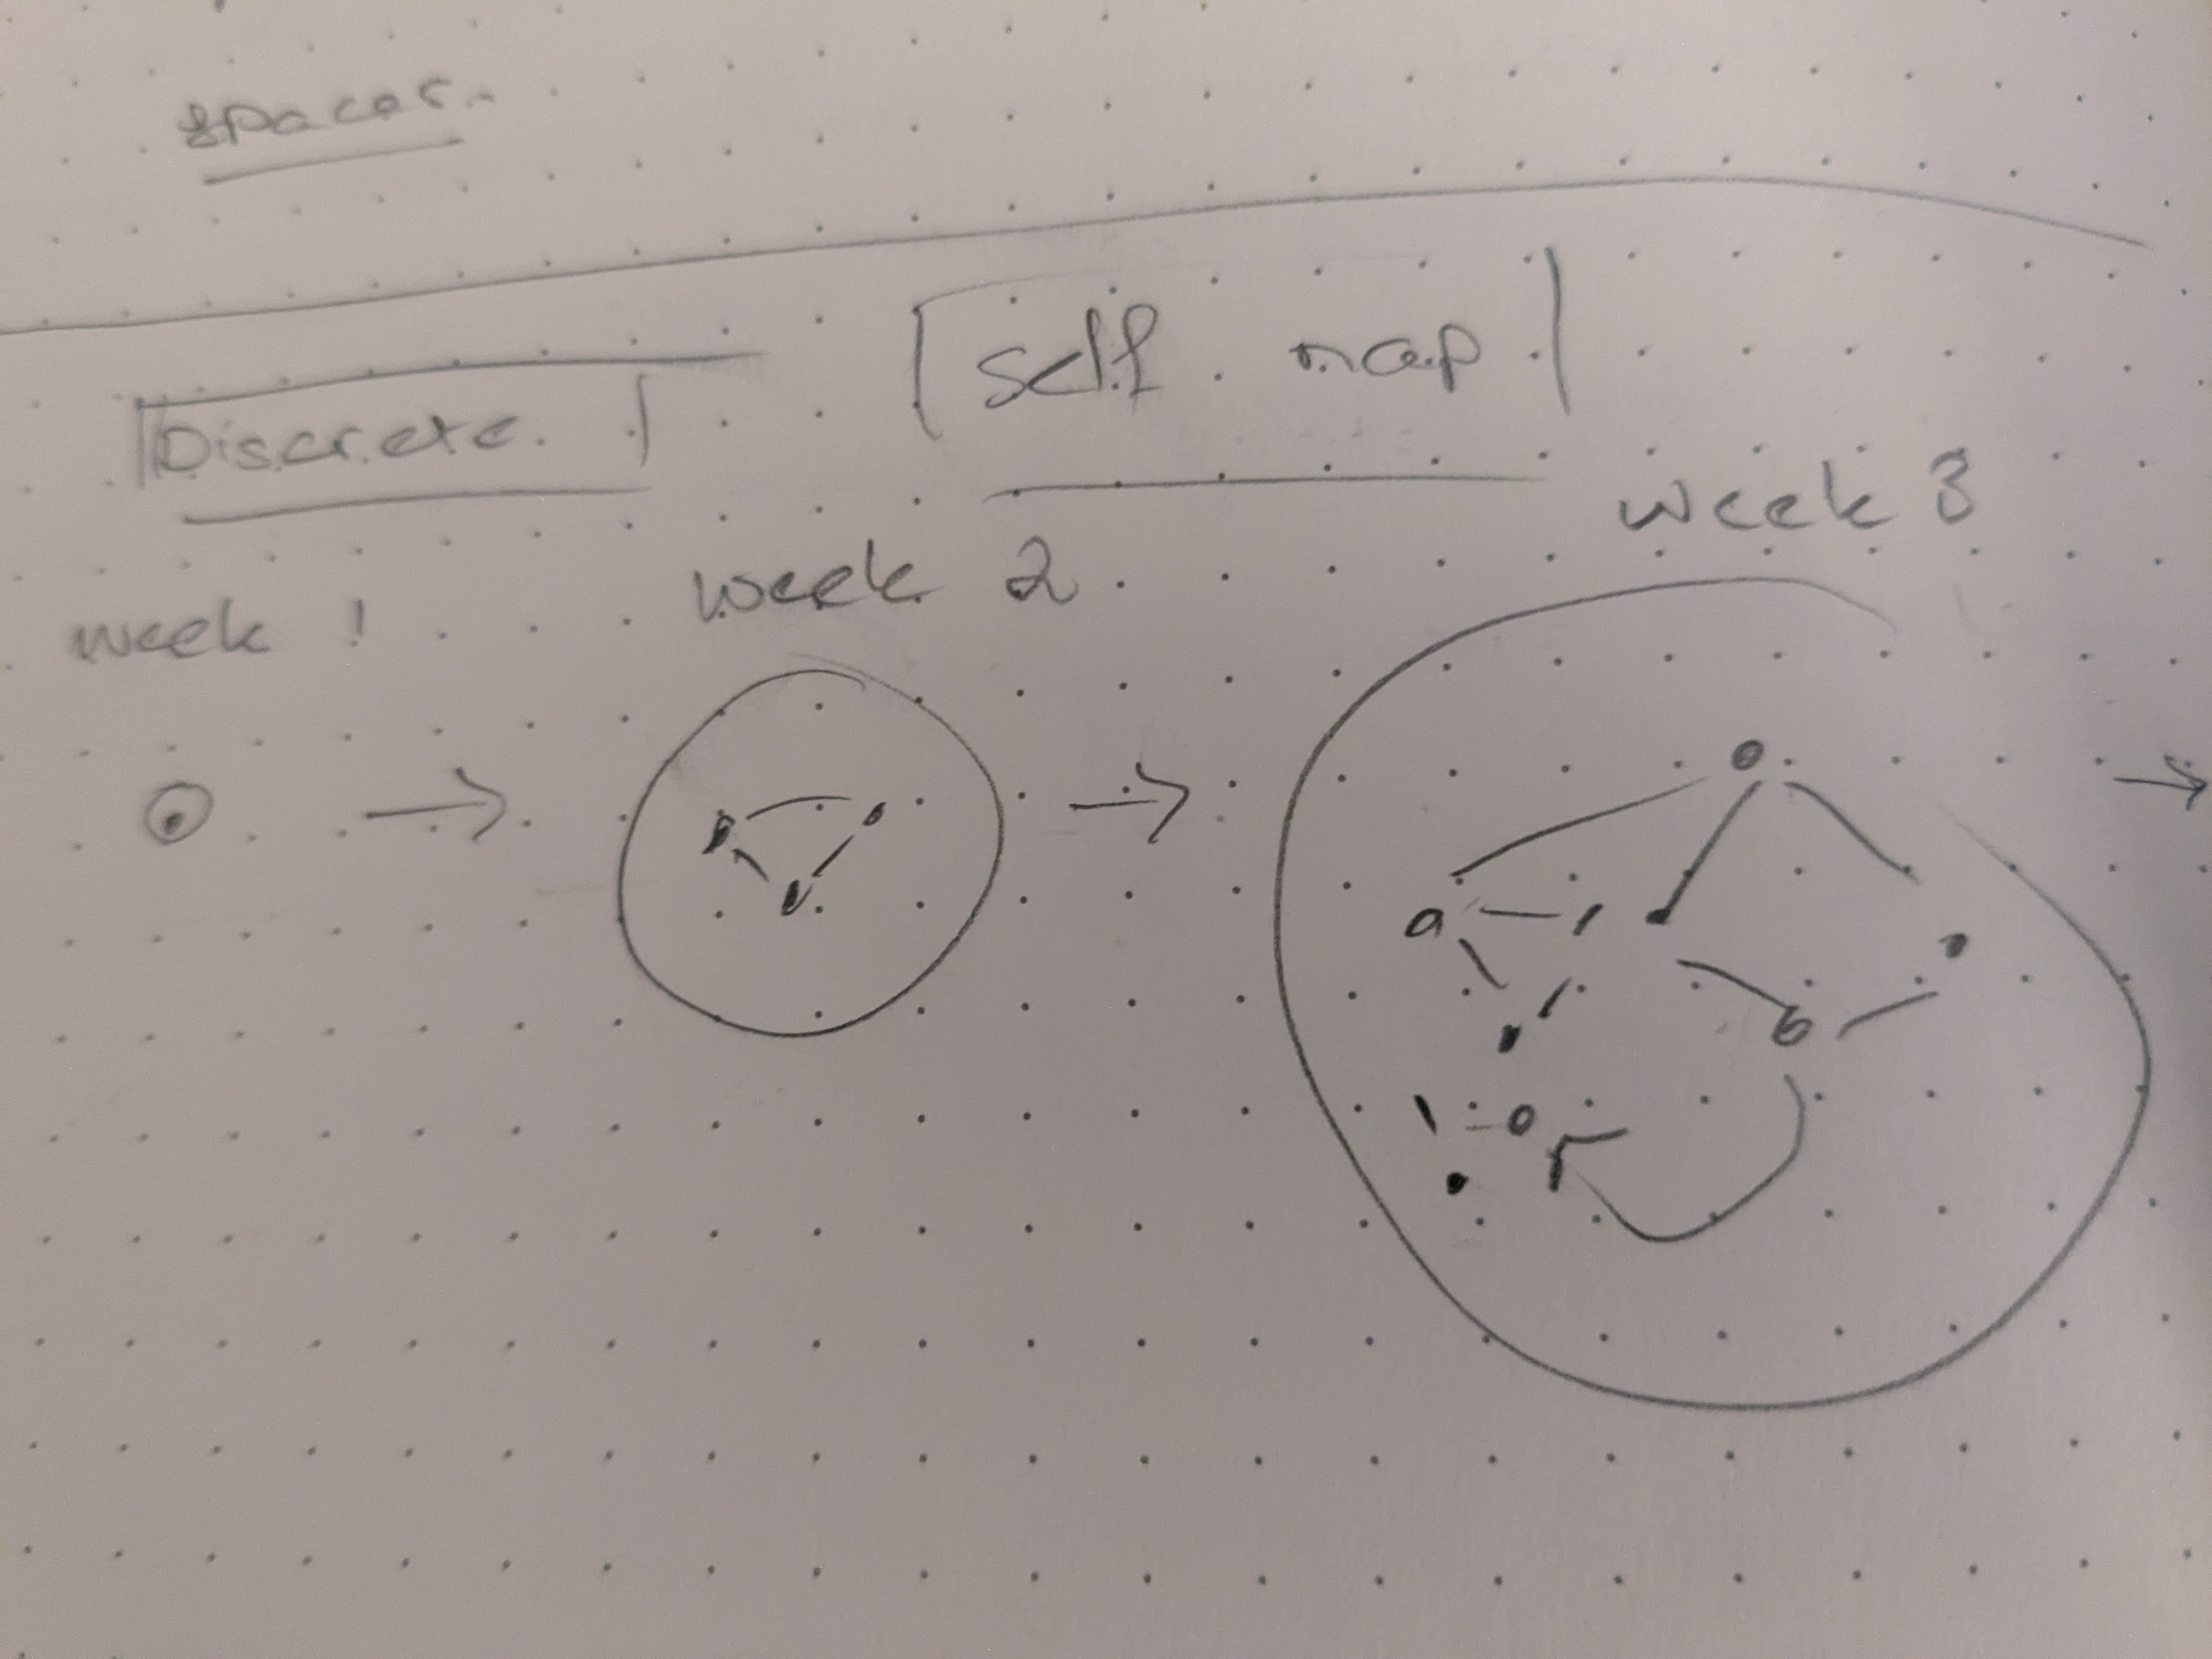 spaces
Discrete. self map
week 1 week 2 week 3